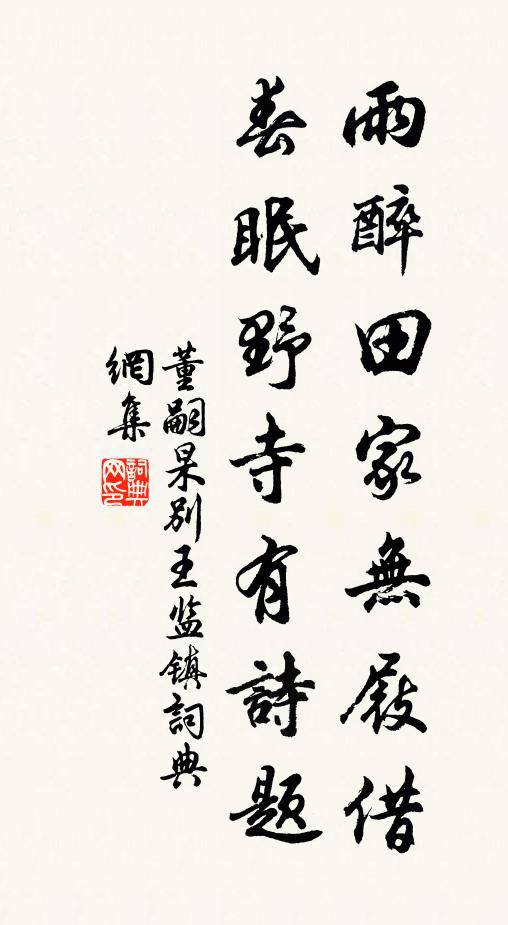 雨醉田家無屐借
春眠野寺有詩題
董嗣杲別王监镇詞典
網集
詞典網印